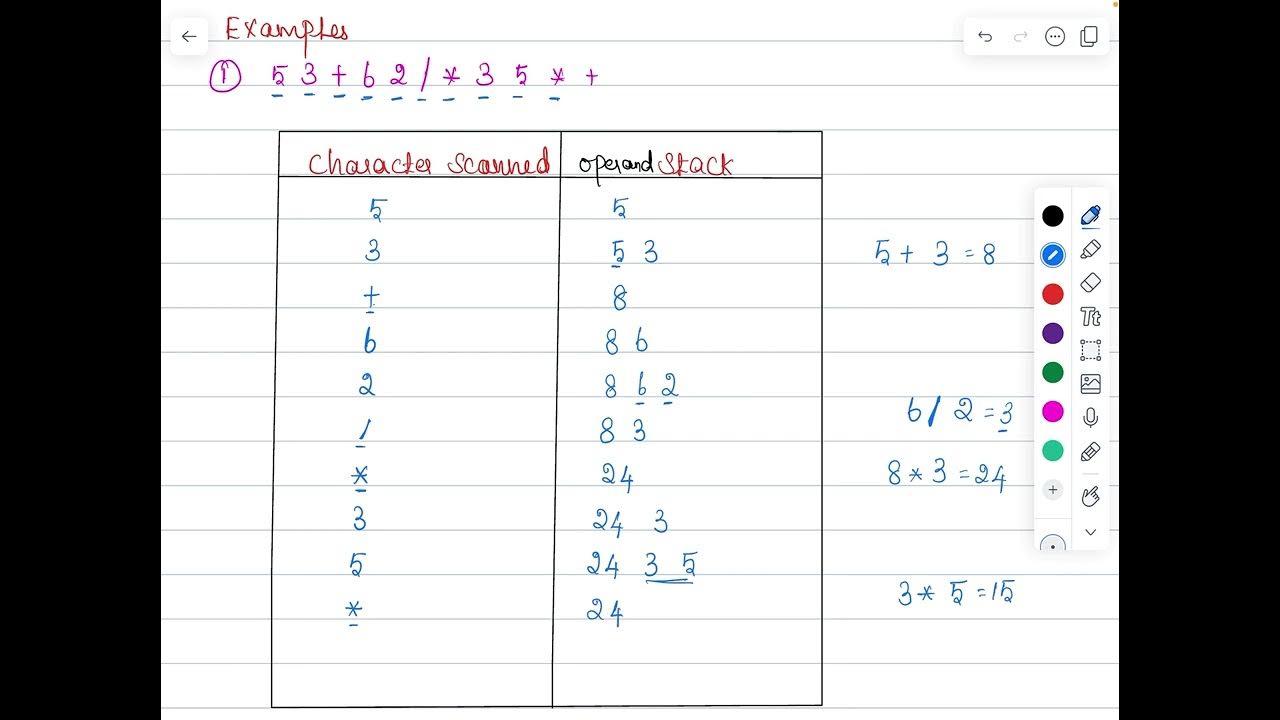 Examples
① 5 3 + 6 2 / * 3 5 * +
Character Scanned operand Stack
5 5
3 5 3 5 + 3 = 8
+ 8
6 8 6
2 8 6 2
6 / 2 = 3
/ 8 3
* 24 8 * 3 = 24
3 24 3
5 24 3 5
3 * 5 = 15
* 24
Tt